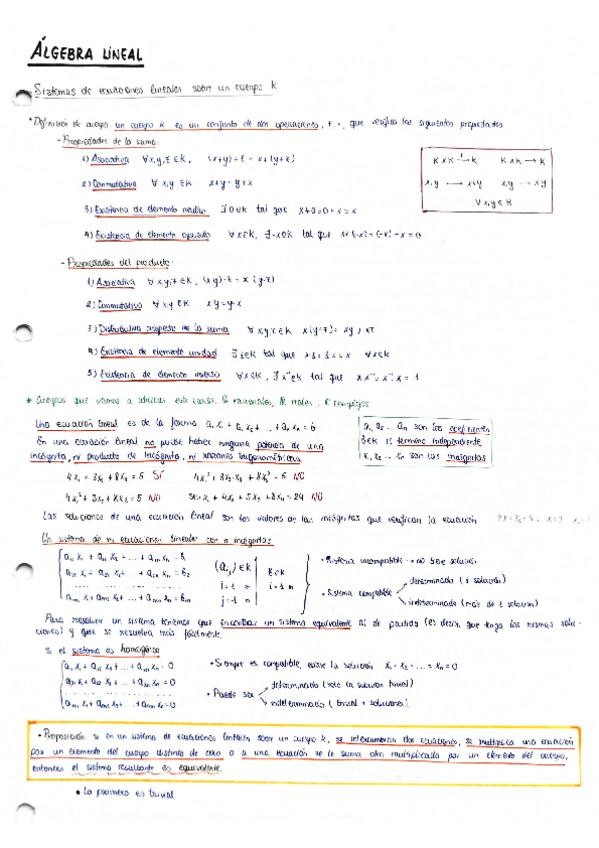 ÁLGEBRA LINEAL
Sistemas de ecuaciones lineales sobre un cuerpo K
• Definición de cuerpo: un cuerpo K es un conjunto de dos operaciones, +, ·, que verifica las siguientes propiedades
- Propiedades de la suma:
1) Asociativa ∀x,y,z ∈ K, (x+y)+z = x+(y+z)
2) Conmutativa ∀ x,y ∈ K x+y = y+x
3) Existencia de elemento neutro ∃ 0 ∈ K tal que x+0 = 0+x = x
4) Existencia de elemento opuesto ∀x∈K, ∃ -x∈K tal que x+(-x) = (-x)+x = 0
K×K → K K×K → K
x,y → x+y x,y → x·y
∀ x,y ∈ K
- Propiedades del producto:
1) Asociativa ∀x,y,z ∈ K, (x·y)·z = x·(y·z)
2) Conmutativa ∀ x,y ∈ K x·y = y·x
3) Distributiva respecto de la suma ∀ x,y,z ∈ K
4) Existencia de elemento unidad ∃ 1∈K tal que ∀x∈K
5) Existencia de elemento inverso ∀x∈K, ∃ x⁻¹∈K tal que x·x⁻¹ = x⁻¹·x = 1
* Cuerpos que vamos a utilizar este curso: racionales, R reales, C complejos
Una ecuación lineal es de la forma a₁x₁ + a₂x₂ + ... + aₙxₙ = b
En una ecuación lineal no puede haber ninguna potencia de una
incógnita, ni producto de incógnita, ni razones trigonométricas
a₁, a₂ ... aₙ son los coeficientes
b∈K es término independiente
x₁, x₂ ... xₙ son las incógnitas
4x₁ + 3x₂ + 8x₃ = 5 SÍ NO
NO NO
Las soluciones de una ecuación lineal son los valores de las incógnitas que verifican la ecuación
Un sistema de m ecuaciones lineales con n incógnitas
a₁₁x₁ + a₁₂x₂ + ... + a₁ₙxₙ = b₁
a₂₁x₁ + a₂₂x₂ + ... + a₂ₙxₙ = b₂
aₘ₁x₁ + aₘ₂x₂ + ... + aₘₙxₙ = bₘ
• Sistema incompatible → no tiene solución
• Sistema compatible
determinado (1 solución)
indeterminado (más de 1 solución)
Para resolver un sistema tenemos que encontrar un sistema equivalente al de partida (es decir, que tenga las mismas solu-
ciones) y que se resuelva más fácilmente
Si el sistema es homogéneo
a₁₁x₁ + a₁₂x₂ + ... + a₁ₙxₙ = 0
a₂₁x₁ + a₂₂x₂ + ... + a₂ₙxₙ = 0
aₘ₁x₁ + aₘ₂x₂ + ... + aₘₙxₙ = 0
• Siempre es compatible, existe la solución x₁ = x₂ = ... = xₙ = 0
• Puede ser
determinado (solo la solución trivial)
indeterminado (trivial + soluciones)
• Proposición: si en un sistema de ecuaciones lineales sobre un cuerpo K, se intercambian dos ecuaciones, se multiplica una ecuación
por un elemento del cuerpo distinto de cero o a una ecuación se le suma otra multiplicada por un elemento del cuerpo,
entonces el sistema resultante es equivalente.
• La primera es trivial